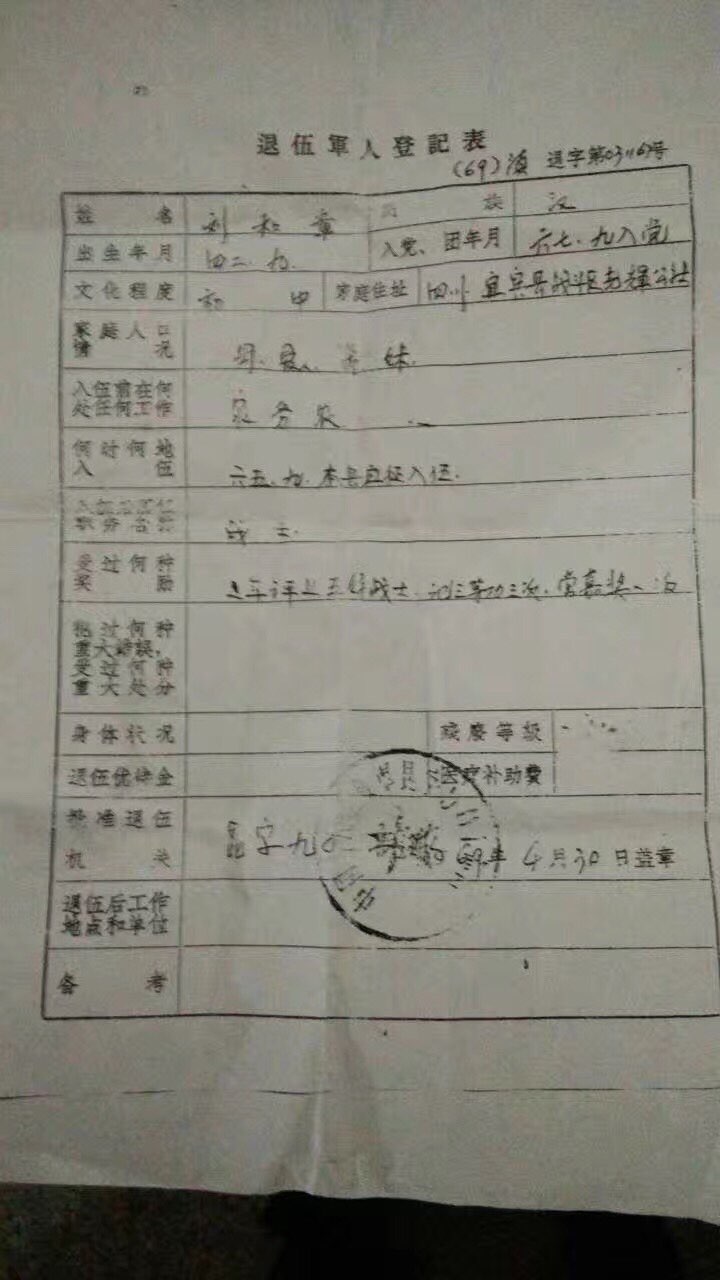 退伍軍人登記表
(69)滇 退字第03116号
姓名 刘和章 民族 汉
出生年月 四二.九. 入党、团年月 六七.九入党
文化程度 初中 家庭住址 四川宜宾县战斗区 公社
家庭人口情况 母. 妹
入伍前在何处任何工作 家务农
何时何地入伍 六五.九.本县应征入伍.
职务名称 战士
受过何种奖励 年评上五好战士.三等功三次.嘉奖一次
犯过何种重大错误,受过何种重大处分
身体状况 残废等级
退伍优待金 医疗补助费
批准退伍机关 字九 69年4月30日盖章
退伍后工作地点和单位
备考